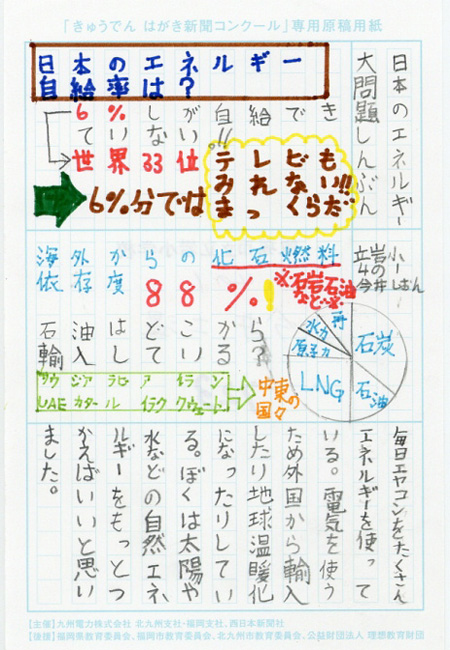 「きゅうでん はがき新聞コンクール」専用原稿用紙
日本のエネルギー
大問題しんぶん
立岩小
4の一
今井しおん
日本のエネルギー
自給率は?
自給できて
いない!!
6%しか
世界33位
6%分では
テレビも
みれない!!
まっくらだ
海外からの化石燃料
依存度88%!
※石炭石油など※
石油はどこから?
輸入してい
る
サウジアラビア イラン
UAE カタール イラク クウェート
中東の
国々
再
水力
原子力
石炭
LNG
石油
毎日エヤコンをたくさん
エネルギーを使って
いる。電気を使う
ため外国から輸入
したり地球温暖化
になったりしてい
る。ぼくは太陽や
水などの自然エネ
ルギーをもっとつ
かえばいいと思い
ました。
【主催】九州電力株式会社 北九州支社・福岡支社、西日本新聞社
【後援】福岡県教育委員会、福岡市教育委員会、北九州市教育委員会、公益財団法人 理想教育財団